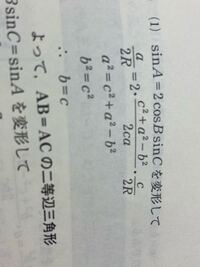 (1) sinA=2cosBsinCを変形して
a/2R=2·(c²+a²−b²)/2ca·c/2R
a²=c²+a²−b²
b²=c²
∴ b=c
よって，AB=ACの二等辺三角形
BsinC=sinAを変形して